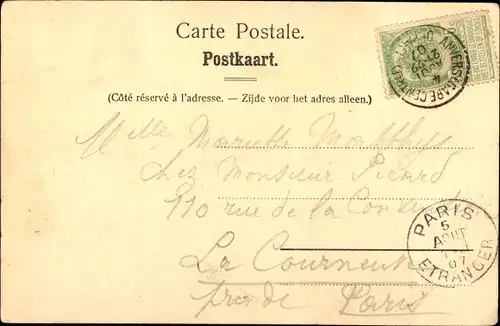 Carte Postale.
Postkaart.
(Côté réservé à l'adresse. — Zijde voor het adres alleen.)
Mlle Mariette Matthys
chez Monsieur Picard
110 rue de la Convention
La Courneuve
près de Paris
PARIS
5
AOUT
07
ETRANGER